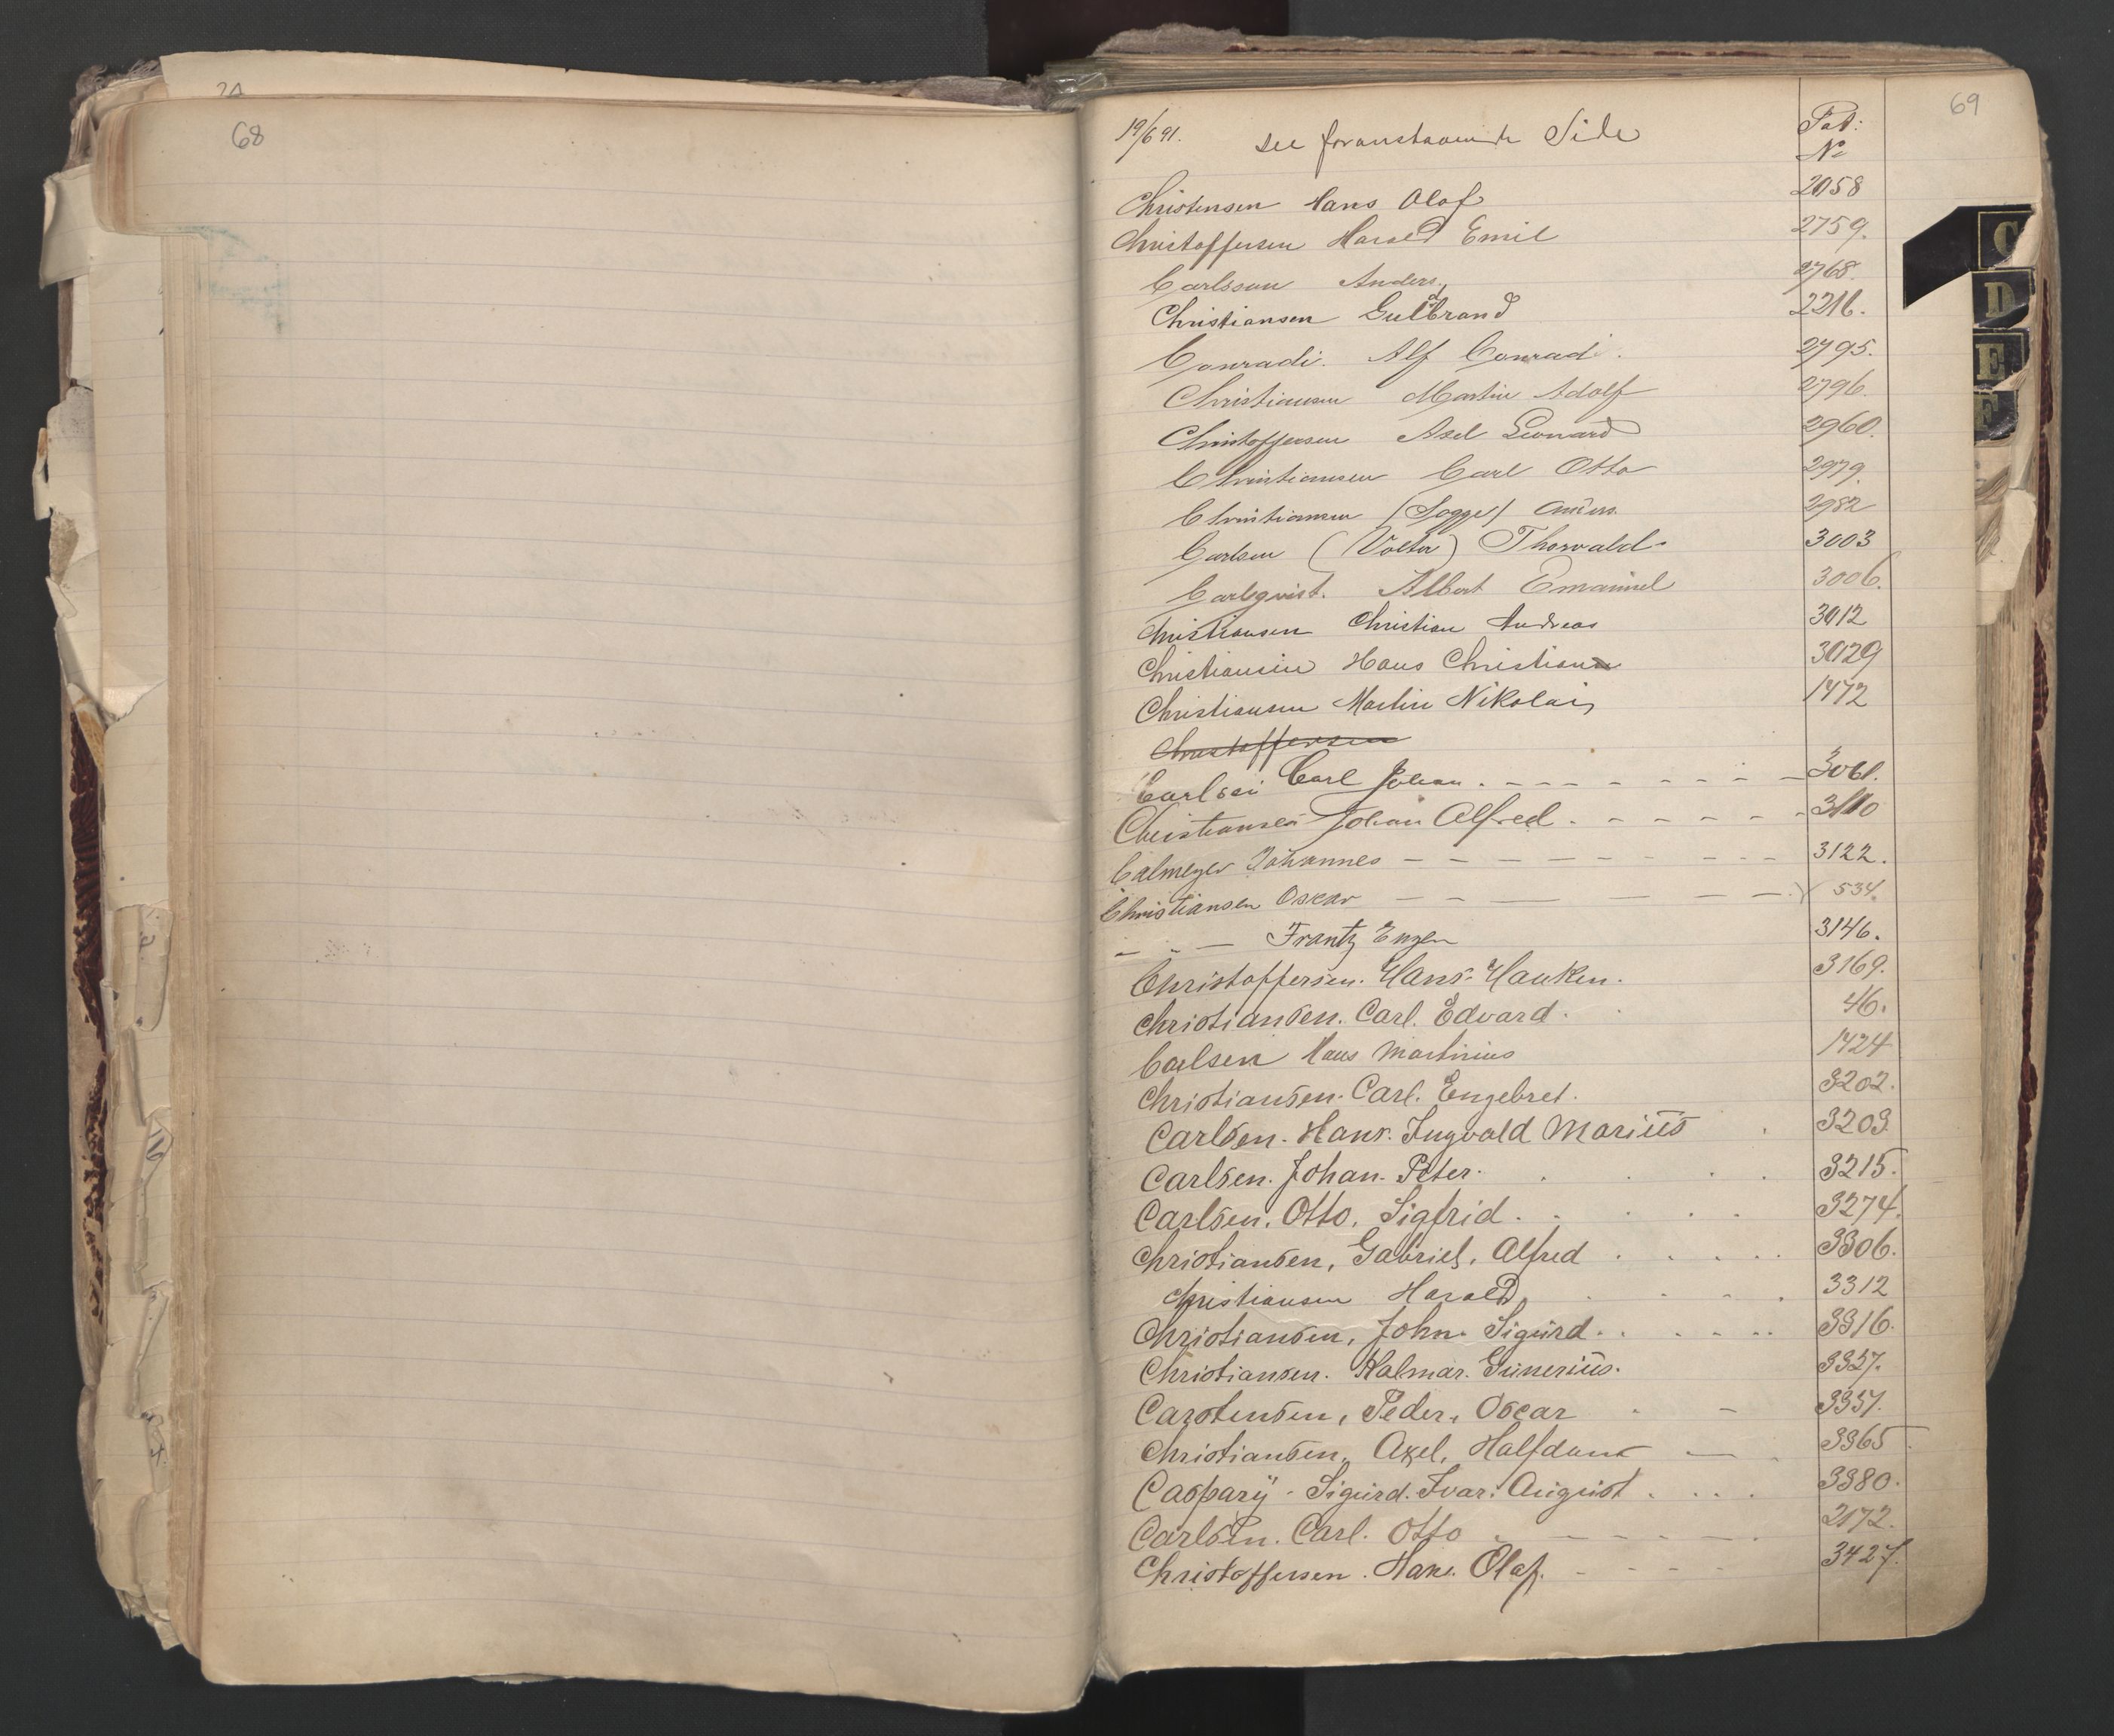 68
69
19/6 91. see foranstaaende Side
Pat:
No
Christensen Hans Olaf 2058
Christoffersen Harald Emil 2759.
Carlsson Anders, 2768.
Christiansen Gulbrand 2216.
Conradi. Alf Conradi. 2795.
Christiansen Martin Adolf 2796.
Christoffersen Axel Leonard 2960.
Christiansen Carl Otto 2979.
Christiansen (Sogge) 2982
Carlsen (Volter) Thorvald. 3003
Carlqvist. Albert Emanuel 3006.
Christiansen Christian Andreas 3012
Christiansen Hans Christian 3029
Christiansen Martin Nikolai, 1472
Christoffersen
Carl Johan. 3061.
Christiansen Johan Alfred. 3110
Calmeyer Johannes 3122.
Christiansen Oskar 534.
— " — Frantz Eugen 3146.
Christoffersen. Hans. Hauken. 3169.
Christiansen. Carl. Edvard. 46.
Carlsen Hans Martinius 1424
Christiansen. Carl. Engebret. 3202.
Carlsen. Hans. Ingvald Marius 3203
Carlsen. Johan. Peter. 3215.
Carlsen. Otto. Sigfrid. 3274.
Christiansen, Gabriel, Alfred 3306.
Christiansen Harald, 3312
Christiansen, John. Sigurd. 3316.
Christiansen. Halmar. Gunerius. 3327.
Carstensen, Peder, Oscar 3357.
Christiansen, Axel, Halfdan 3365
Caspary - Sigurd. Ivar. August. 3380.
Carlsen. Carl. Otto 2172.
Christoffersen. Hans. Olaf. 3427.
C
D
E
F